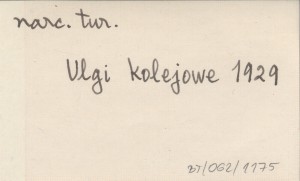 narc. tur.
Ulgi kolejowe 1929
BT/062/1175